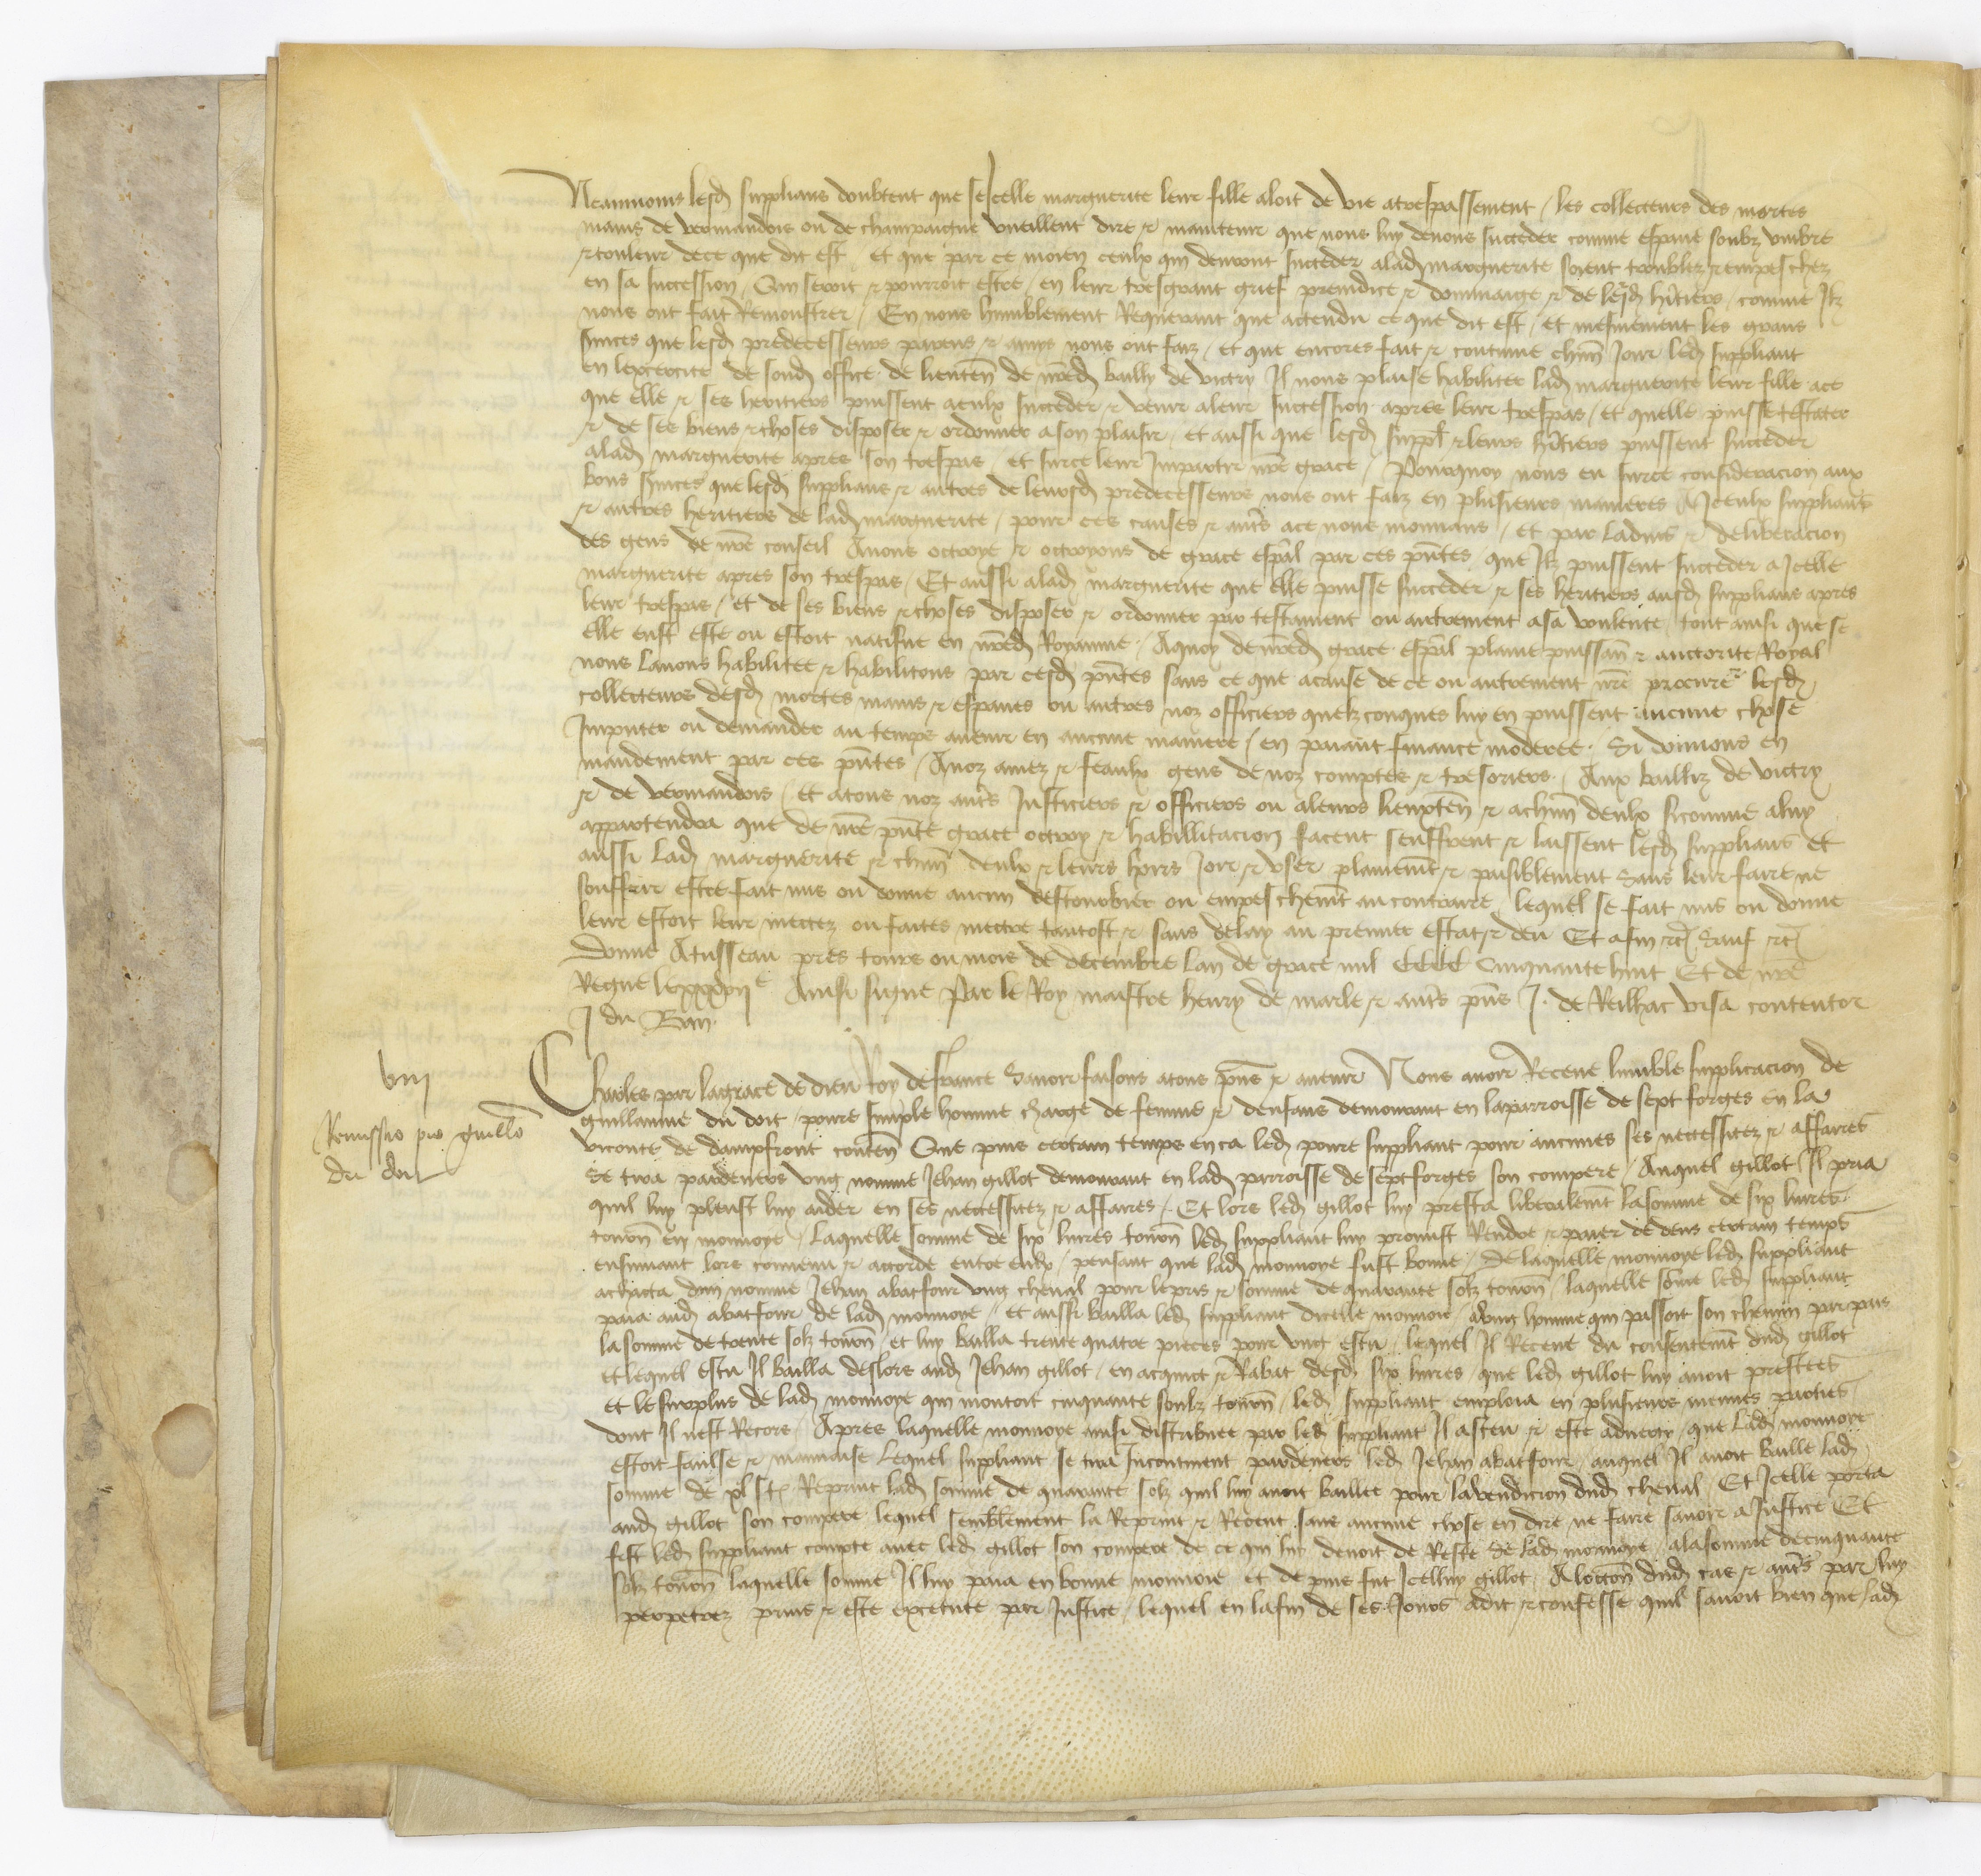 Neantmoins lesd supplians doubtent que se Icelle marguerite leur fille aloit de vie a trespassement / les collecteurs des mortes
mains de vermandois ou de champaigne vueillent dire & maintenir que nous luy devons succeder comme espave soubz umbre
& couleur de ce que dit est / et que par ce moien ceulx qui devront succeder a lad marguerite soient troublez & empeschez
en sa succession / Qui seroit & pourroit estre en leur tresgrant grief preiudice & dommaige & de lesd hitiers / comme Ilz
nous ont fait Remonstrer / En nous humblement Requerant que actendu ce que dit est / et mesmement les grans
suices que lesd predecesseurs parens & amys nous ont faiz / et que encores fait & continue chun Jour led suppliant
en lexercite de sond office de lieuten de nred bailly de victry Il nous plaise habiliter lad marguerite leur fille a ce
que elle & ses heritiers puissent a eulx succeder & venir a leur succession apres leur trespas / et quelle puisse tester
& de ses biens & choses disposer & ordonner a son plaisir / et aussi que lesd suppl & leurs hitiers puissent succeder
a lad marguerite apres son trespas / et sur ce leur Impartir nre grace / Pourquoy nous eu sur ce consideracion aux
bons suices que lesd supplians & autres de leursd predecesseurs nous ont faiz en plusieurs manieres A Iceulx supplians
& autres heritiers de lad marguerite / pour ces causes & auts a ce nous mouvans / et par ladvis & deliberacion
des gens de nre conseil Avons octroye & octroyons de grace espal par ces pntes que Ilz puissent succeder a Icelle
marguerite apres son trespas / Et aussi a lad marguerite que elle puisse succeder & ses heritiers ausd supplians apres
leur trespas / et de ses biens & choses disposer & ordonner par testament ou autrement a sa voulente tout ainsi que se
elle eust este ou estoit natifve en nred Royaume / A quoy de nred grace espal plaine puissan & auctorite Royal
nous lavons habilitee & habilitons par cesd pntes sans ce que a cause de ce ou autrement nre procureur lesd
collecteurs desd mortes mains & espaves ou autres noz officiers quelzconques luy en puissent aucune chose
Imputer ou demander au temps avenir en aucune maniere / en paiant finance moderee. Si donnons en
mandement par ces pntes / A noz amez & feaulx gens de noz comptes & tresoriers. Aux bailliz de victry
& de vermandois / et a tous noz auts Justiciers & officiers ou a leurs lieuxten & a chun deulx si comme a luy
appartendra que de nre pnte grace octroy & habillitacion facent seuffrent & laissent lesd supplians et
aussi lad marguerite & chun deulx & leurs hoirs Joir & user plainemt & paisiblement sans leur faire ne
souffrir estre fait mis ou donne aucun destourbier ou empeschemt au contraire / lequel se fait mis ou donne
leur estoit leur mectez ou faites mectre tantost & sans delay au premier estat & deu Et afin &c Sauf &c
Donne A tusseau pres tours ou mois de decembre lan de grace mil CCCC cinquante huit Et de nre
Regne le xxxvije Ainsi signe Par le Roy maistre henry de marle & auts pns J. de Reilhac visa contentor
J du Ban
viij
Remissio pro guillo
du doit
Charles par la grace de dieu Roy de france Savoir faisons a tous pns & avenir Nous avoir Receue lumble supplicacion de
guillaume du doit povre simple homme charge de femme & denfans demourant en la parroisse de sept forges en la
viconte de dampfront conten Que puis certain temps en ca led povre suppliant pour aucunes ses neccessitez & affaires
se tira pardevers ung nomme Jehan gillot demourant en lad parroisse de sept forges son compere / Auquel gillot Il pria
quil luy pleust luy aider en ses neccessitez & affaires / Et lors led gillot luy presta liberalemt la somme de six livres
tourn en monnoye / Laquelle somme de six livres tourn led suppliant luy promist Rendre & paier dedens certain temps
ensuivant lors convenu & accorde entre eulx / pensant que lad monnoye fust bonne / De laquelle monnoye led suppliant
achacta dun nomme Jehan abatfour ung cheval pour le pris & somme de quarante solz tourn / laquelle some led suppliant
paia aud abatfour de lad monnoye / et aussi bailla led suppliant dicelle monnoie / a ung homme qui passoit son chemin par pais
la somme de trente solz tourn / et luy bailla trente quatre pieces pour ung escu / lequel Il Receut du consentemt dud gillot
et lequel escu Il bailla deslors aud Jehan gillot / en acquict & Rabat desd six livres / que led gillot luy avoit prestees
et le surplus de lad monnoye qui montoit cinquante soulz tourn / led suppliant emploia en plusieurs menues parties
dont Il nest Recors / Apres laquelle monnoye ainsi distribuee par led suppliant Il a sceu & este adverty que lad monnoye
estoit faulse & mauvaise Lequel suppliant se tira Incontinent pardevers led Jehan abatfour auquel Il avoit baille lad
somme de xl st Reprint lad somme de quarante solz quil luy avoit baillee pour la vendicion dud cheval Et Icelle porta
aud gillot son compere lequel semblement la Reprint & Receut sans aucune chose en dire ne faire savoir a Justice Et
fist led suppliant compte avec led gillot son compere de ce qui luy devoit de Reste de lad monnoye / a la somme de cinquante
solz tourn laquelle somme Il luy paia en bonne monnoie et depuis fut Icelluy gillot A loccon dud cas & auts par luy
perpetrez prins & este execute par Justice / lequel en la fin de ses Jours a dit & confesse quil savoit bien que lad